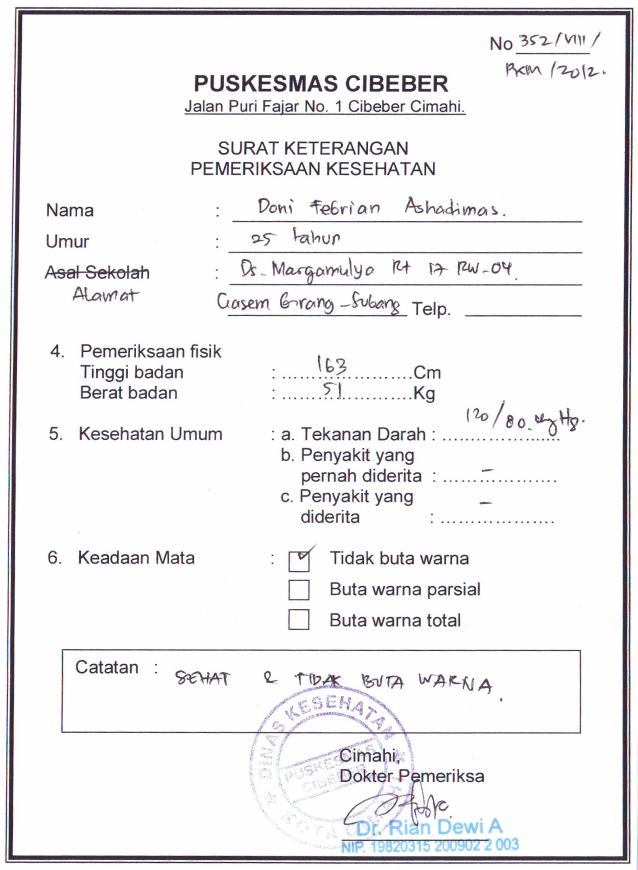 No 352/VIII/
PKM/2012.
PUSKESMAS CIBEBER
Jalan Puri Fajar No. 1 Cibeber Cimahi.
SURAT KETERANGAN
PEMERIKSAAN KESEHATAN
Nama : Doni Febrian Ashadimas.
Umur : 25 tahun
Asal Sekolah : Ds. Margamulyo Rt 17 RW-04.
Alamat Gasem Girang-Subang Telp.
4. Pemeriksaan fisik
Tinggi badan : 163 Cm
Berat badan : 51 Kg
5. Kesehatan Umum : a. Tekanan Darah : 120/80 mgHg.
b. Penyakit yang
pernah diderita : –
c. Penyakit yang
diderita : –
6. Keadaan Mata : ✓ Tidak buta warna
Buta warna parsial
Buta warna total
Catatan : SEHAT & TIDAK BUTA WARNA.
DINAS KESEHATAN
PUSKESMAS
CIBEBER
KOTA
Cimahi,
Dokter Pemeriksa
Dr. Rian Dewi A
NIP. 19820315 200902 2 003